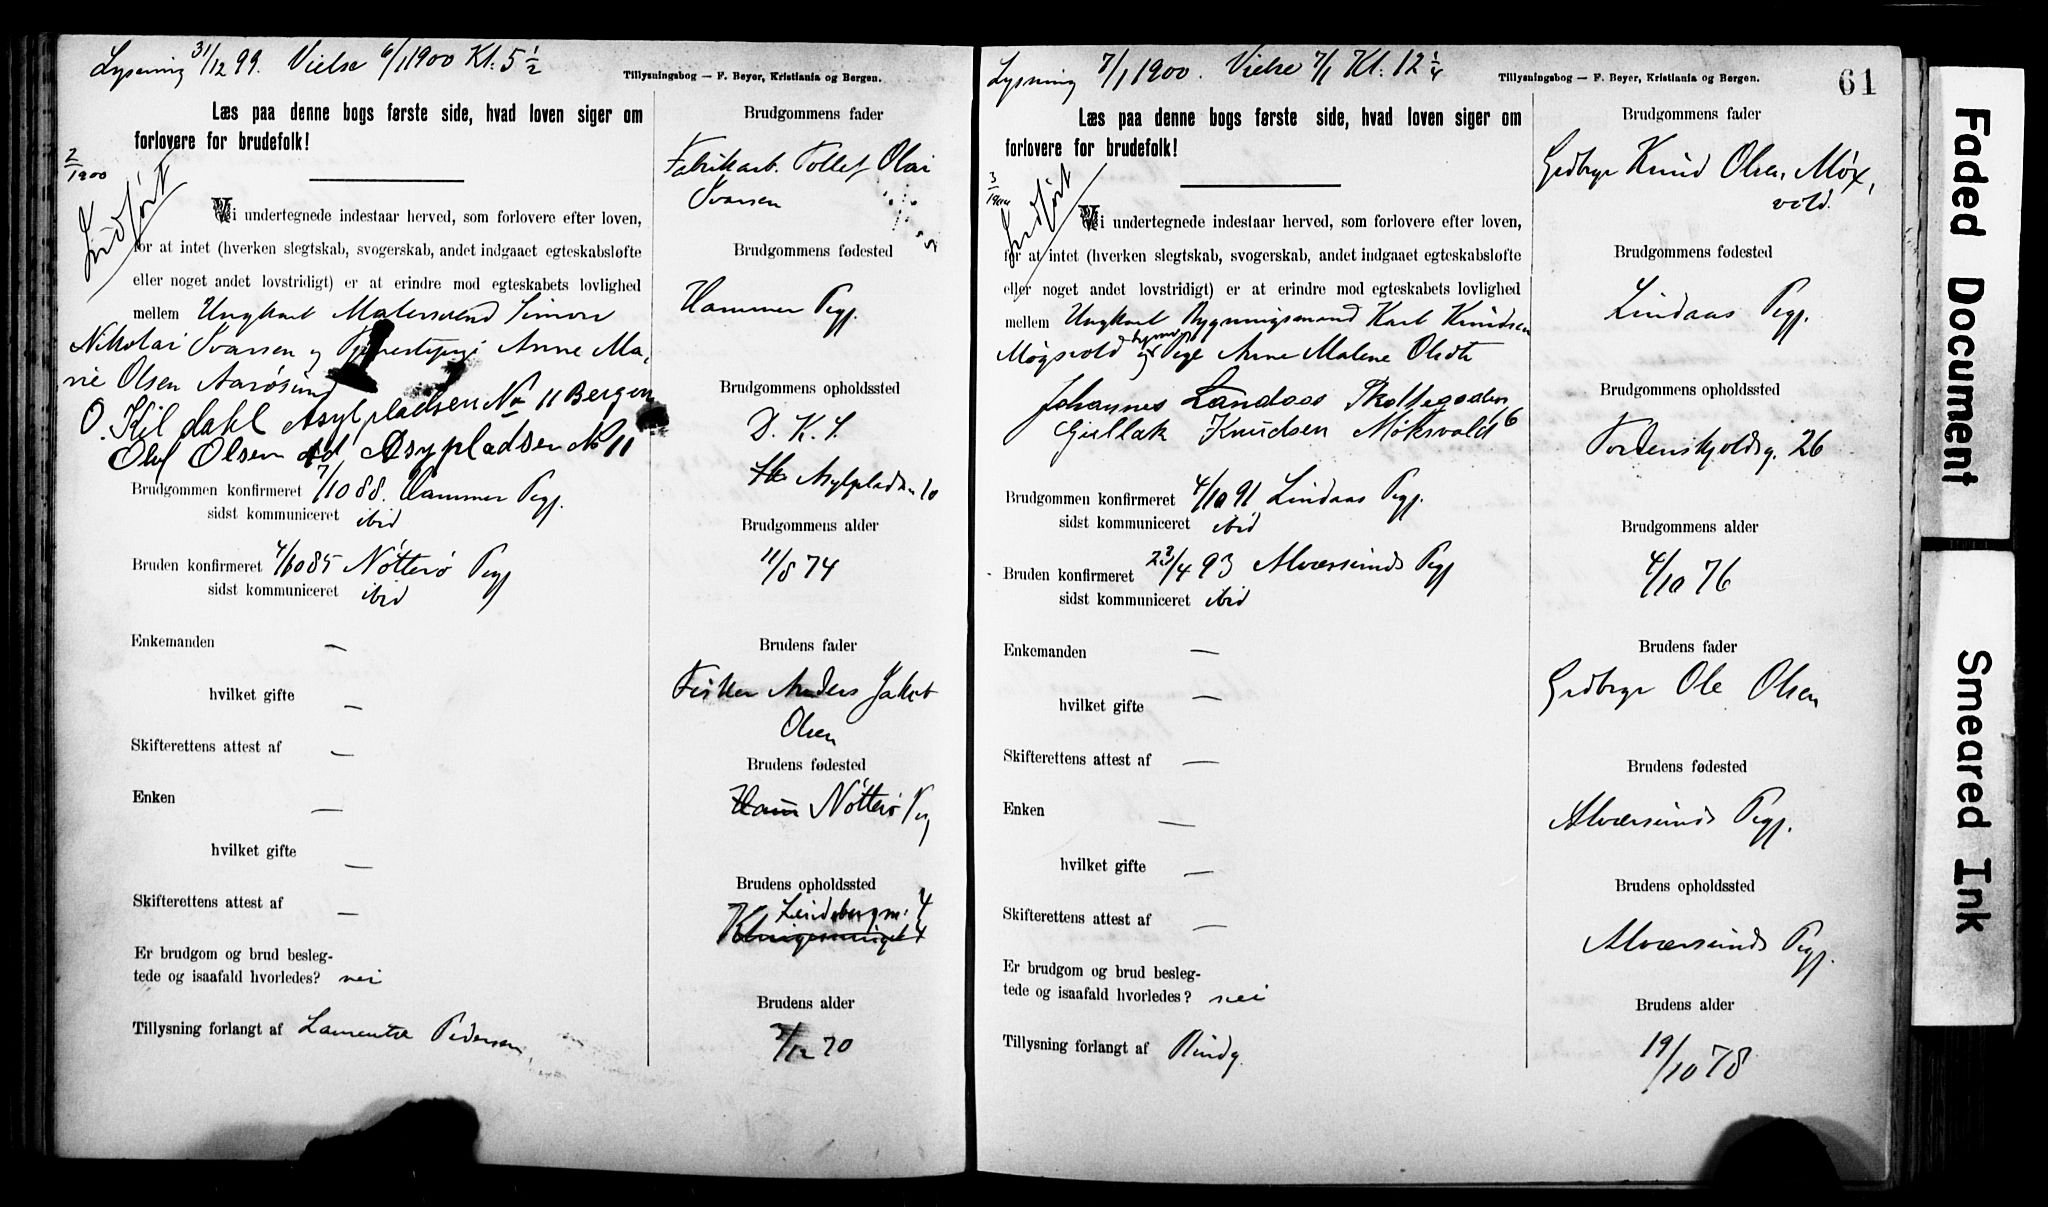 Lysning 31/12 99. Vielse 6/1 1900 Kl: 5 1/2
Tillysningsbog — F. Beyer, Kristiania og Bergen.
Læs paa denne bogs første side, hvad loven siger om
forlovere for brudefolk!
2/1900
Indført
Vi undertegnede indestaar herved, som forlovere efter loven,
for at intet (hverken slegtskab, svogerskab, andet indgaaet egteskabsløfte
eller noget andet lovstridigt) er at erindre mod egteskabets lovlighed
mellem Ungkarl Malersvend Simon
Nikolai Ivarsen og Anne Ma,
rie Olsen Aarøsund
O. Kildahl Asylpladsen No 11 Bergen
Oluf Olsen Asypladsen No 11
Brudgommen konfirmeret 7/10 88. Hammer Pgj.
sidst kommuniceret ibid
Bruden konfirmeret 4/10 85 Nøtterø Pgj
sidst kommuniceret ibid
Enkemanden —
hvilket gifte —
Skifterettens attest af —
Enken —
hvilket gifte —
Skifterettens attest af —
Er brudgom og brud besleg-
tede og isaafald hvorledes? nei
Tillysning forlangt af Lamentse Pedersen,
Brudgommens fader
Fabrikarb. Tollef Olai
Ivarsen
Brudgommens fødested
Hammer Pgj.
Brudgommens opholdssted
D. K. S.
Asylpladsen 10
Brudgommens alder
11/8 74
Brudens fader
Fisker Anders Jakob
Olsen
Brudens fødested
Ham Nøtterø Pgj
Brudens opholdssted
4
Brudens alder
/12 70
Lysning 7/1 1900. Vielse 7/1 Kl: 12 1/4
Tillysningsbog — F. Beyer, Kristiania og Bergen.
61
Læs paa denne bogs første side, hvad loven siger om
forlovere for brudefolk!
3/1900
Indført
Vi undertegnede indestaar herved, som forlovere efter loven,
for at intet (hverken slegtskab, svogerskab, andet indgaaet egteskabsløfte
eller noget andet lovstridigt) er at erindre mod egteskabets lovlighed
mellem Ungkarl Bygningsmand Karl Knudsen
Møgsvold og Pige Anne Malene Olsdtr
Johannes Landaas Skottegaden 6
Gullak Knudsen Møksvold
Brudgommen konfirmeret 4/10 91 Lindaas Pgj.
sidst kommuniceret ibid
Bruden konfirmeret 23/4 93 Alværsunds Pgj
sidst kommuniceret ibid
Enkemanden —
hvilket gifte —
Skifterettens attest af —
Enken —
hvilket gifte —
Skifterettens attest af —
Er brudgom og brud besleg-
tede og isaafald hvorledes? nei
Tillysning forlangt af Rindg.
Brudgommens fader
Grdbrgr Knud Olsen, Møx,
vold.
Brudgommens fødested
Lindaas Pgj.
Brudgommens opholdssted
Tordenskjoldsg. 26
Brudgommens alder
4/10 76
Brudens fader
Grdbrgr Ole Olsen
Brudens fødested
Alværsunds Pgj.
Brudens opholdssted
Alværsunds Pgj.
Brudens alder
19/10 78
Faded Document
Smeared Ink